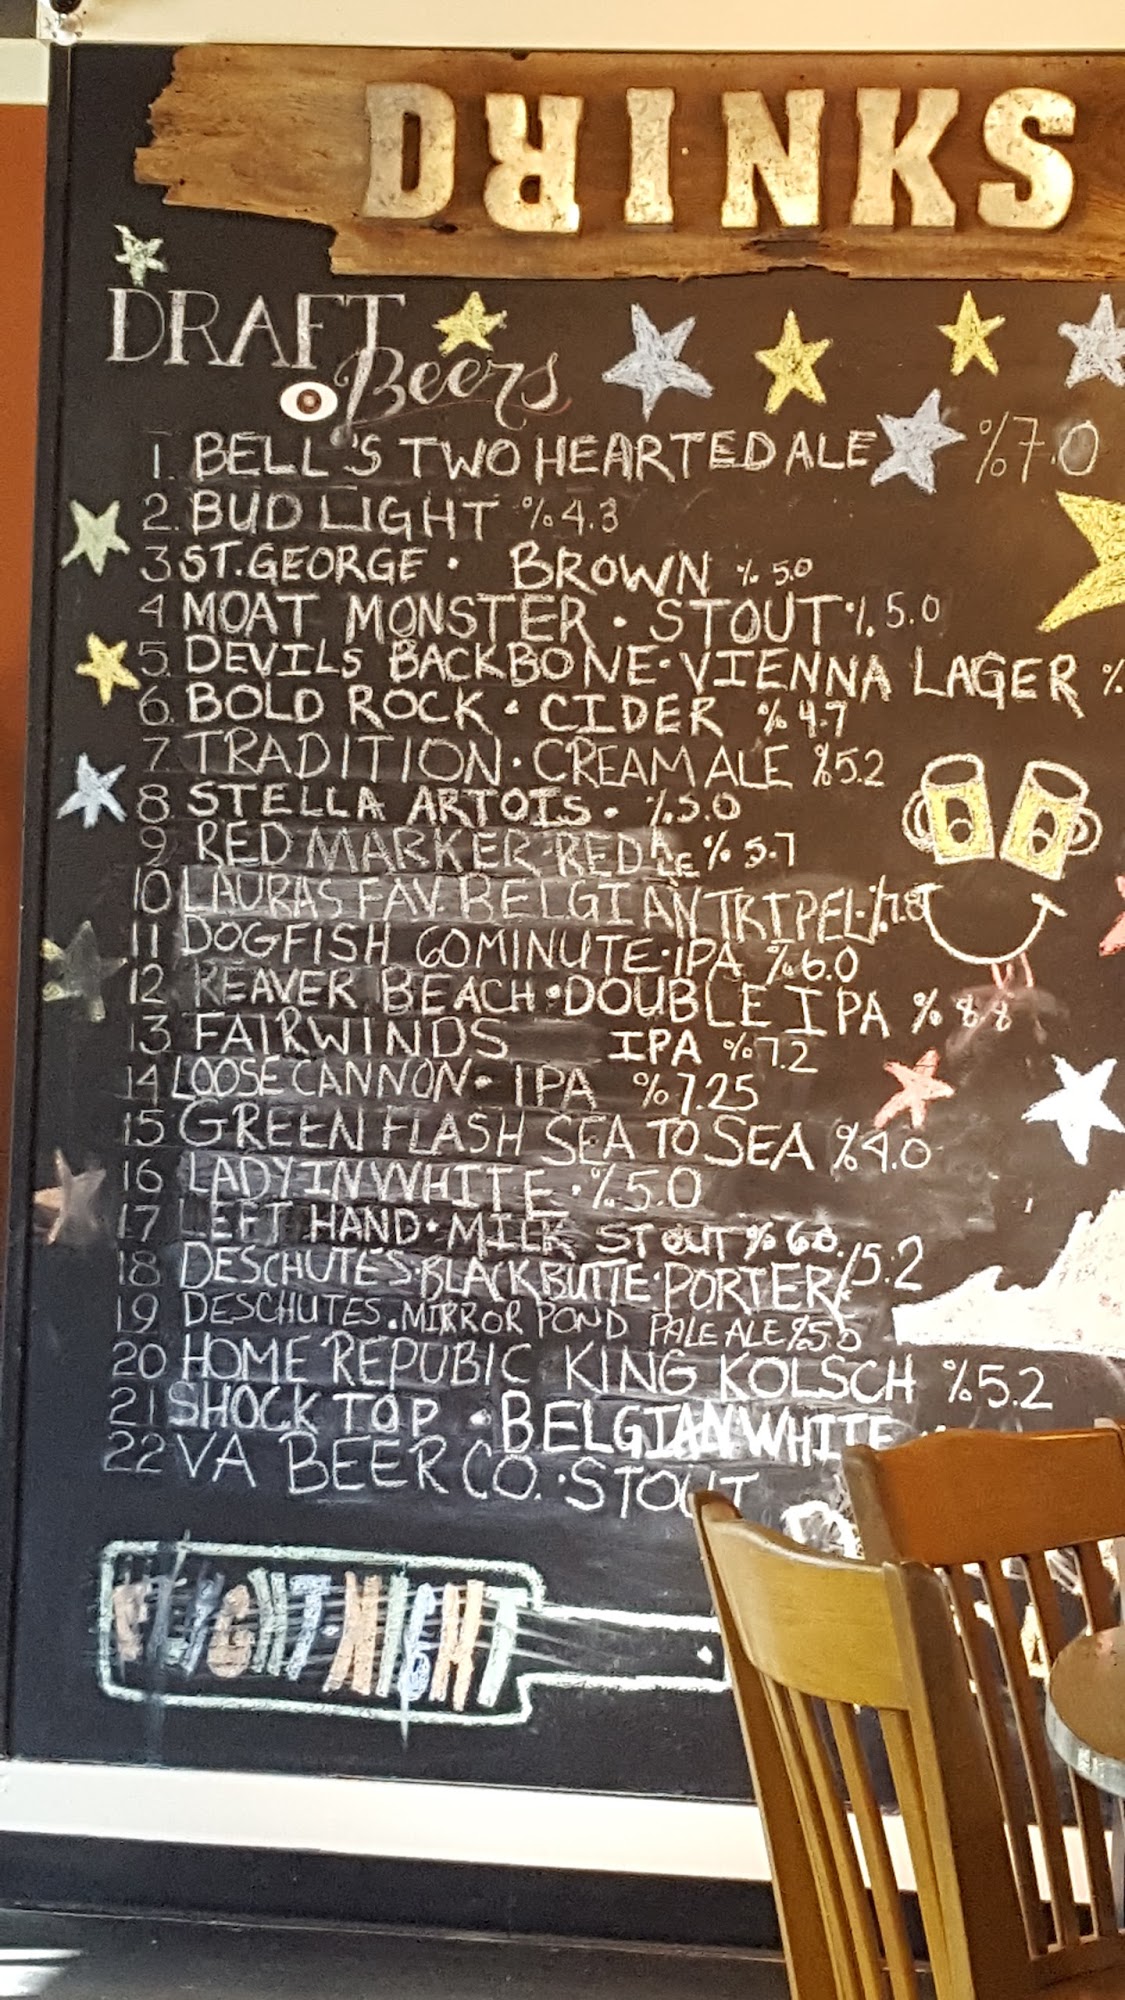 DRINKS
DRAFT
Beers
1. BELL'S TWO HEARTED ALE %7.0
2. BUD LIGHT %4.3
3 ST. GEORGE · BROWN % 5.0
4 MOAT MONSTER · STOUT % 5.0
5. DEVILS BACKBONE · VIENNA LAGER %
6. BOLD ROCK · CIDER % 4.7
7. TRADITION · CREAM ALE %5.2
8. STELLA ARTOIS · %5.0
9. RED MARKER RED ALE % 5.7
10 LAURAS FAV. BELGIAN TRIPEL · %7.8
11 DOGFISH 60 MINUTE · IPA %6.0
12 REAVER BEACH · DOUBLE IPA % 8.8
13 FAIRWINDS IPA %7.2
14 LOOSE CANNON · IPA %7.25
15 GREEN FLASH SEA TO SEA %4.0
16 LADY IN WHITE · %5.0
17 LEFT HAND · MILK STOUT % 6.0
18 DESCHUTES · BLACK BUTTE · PORTER %5.2
19 DESCHUTES · MIRROR POND PALE ALE %5.0
20 HOME REPUBIC KING KOLSCH %5.2
21 SHOCK TOP · BELGIAN WHITE
22 VA BEER CO. · STOUT
FLIGHT · NIGHT